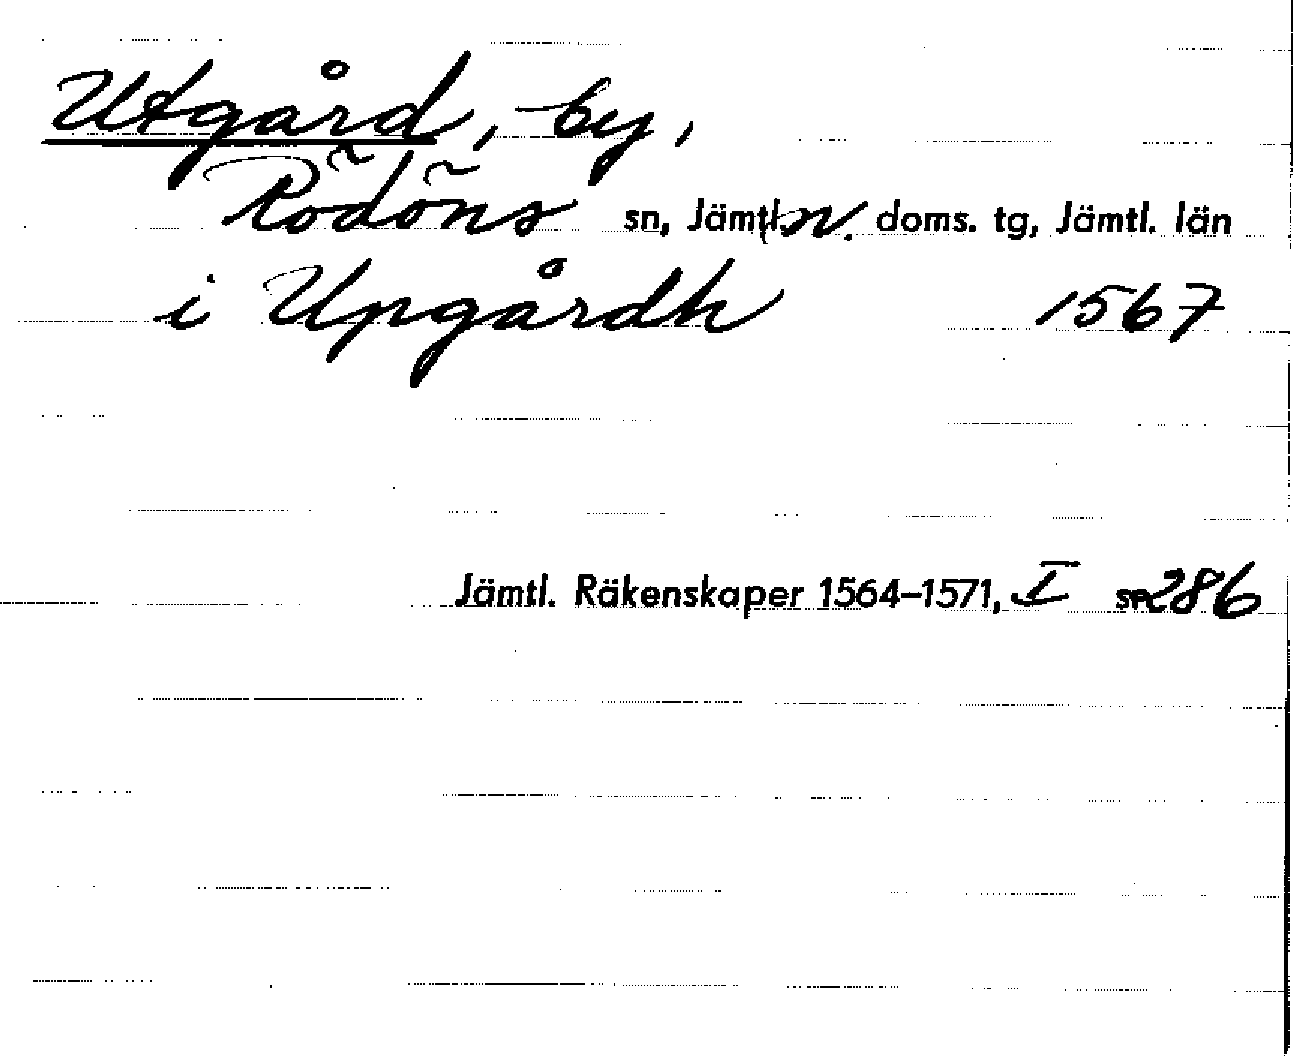 Utgård, by,
Rödöns sn, Jämtl. n. doms. tg, Jämtl. län
i Upgårdh 1567
Jämtl. Räkenskaper 1564–1571, I sp 286